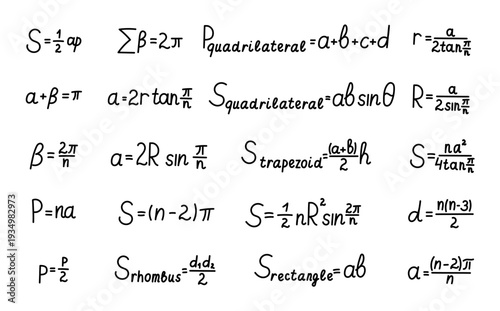 S=½ap ∑β=2π P_quadrilateral=a+b+c+d r=a/(2tan π/n)
a+β=π a=2rtan π/n S_quadrilateral=absinθ R=a/(2sin π/n)
β=2π/n a=2R sin π/n S_trapezoid=(a+b)/2 h S=na²/(4tan π/n)
P=na S=(n-2)π S=½nR²sin 2π/n d=n(n-3)/2
p=P/2 S_rhombus=d₁d₂/2 S_rectangle=ab a=(n-2)π/n
Adobe Stock | #1934982973